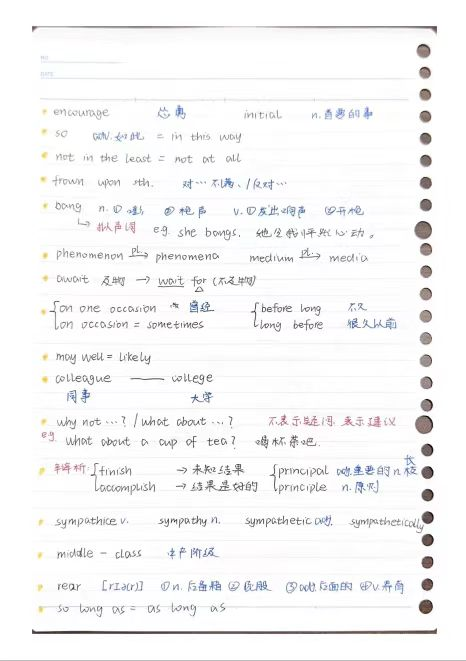 NO
DATE
encourage 怂恿 initial n.首要的事
so adv.如此 = in this way
not in the least = not at all
frown upon sth. 对…不满、/反对…
bang n.① ② 枪声 v.①发出响声 ②开枪
→拟声词 e.g. she bangs. 她令我怦然心动。
phenomenon pl→ phenomena medium pl→ media
await 及物 → wait for (不及物)
on one occasion 曾经 before long 不久
on occasion = sometimes long before 很久以前
may well = likely
colleague —— college
同事 大学
why not …? / what about …? 不表示疑问,表示建议
eg. what about a cup of tea? 喝杯茶吧.
辨析: finish → 未知结果 principal adj.重要的 n.校长
accomplish → 结果是好的 principle n.原则
sympathice v. sympathy n. sympathetic adj. sympathetically
middle - class 中产阶级
rear [rɪə(r)] ①n.后备箱 ②屁股 ③adj.后面的 ④v.养育
so long as = as long as